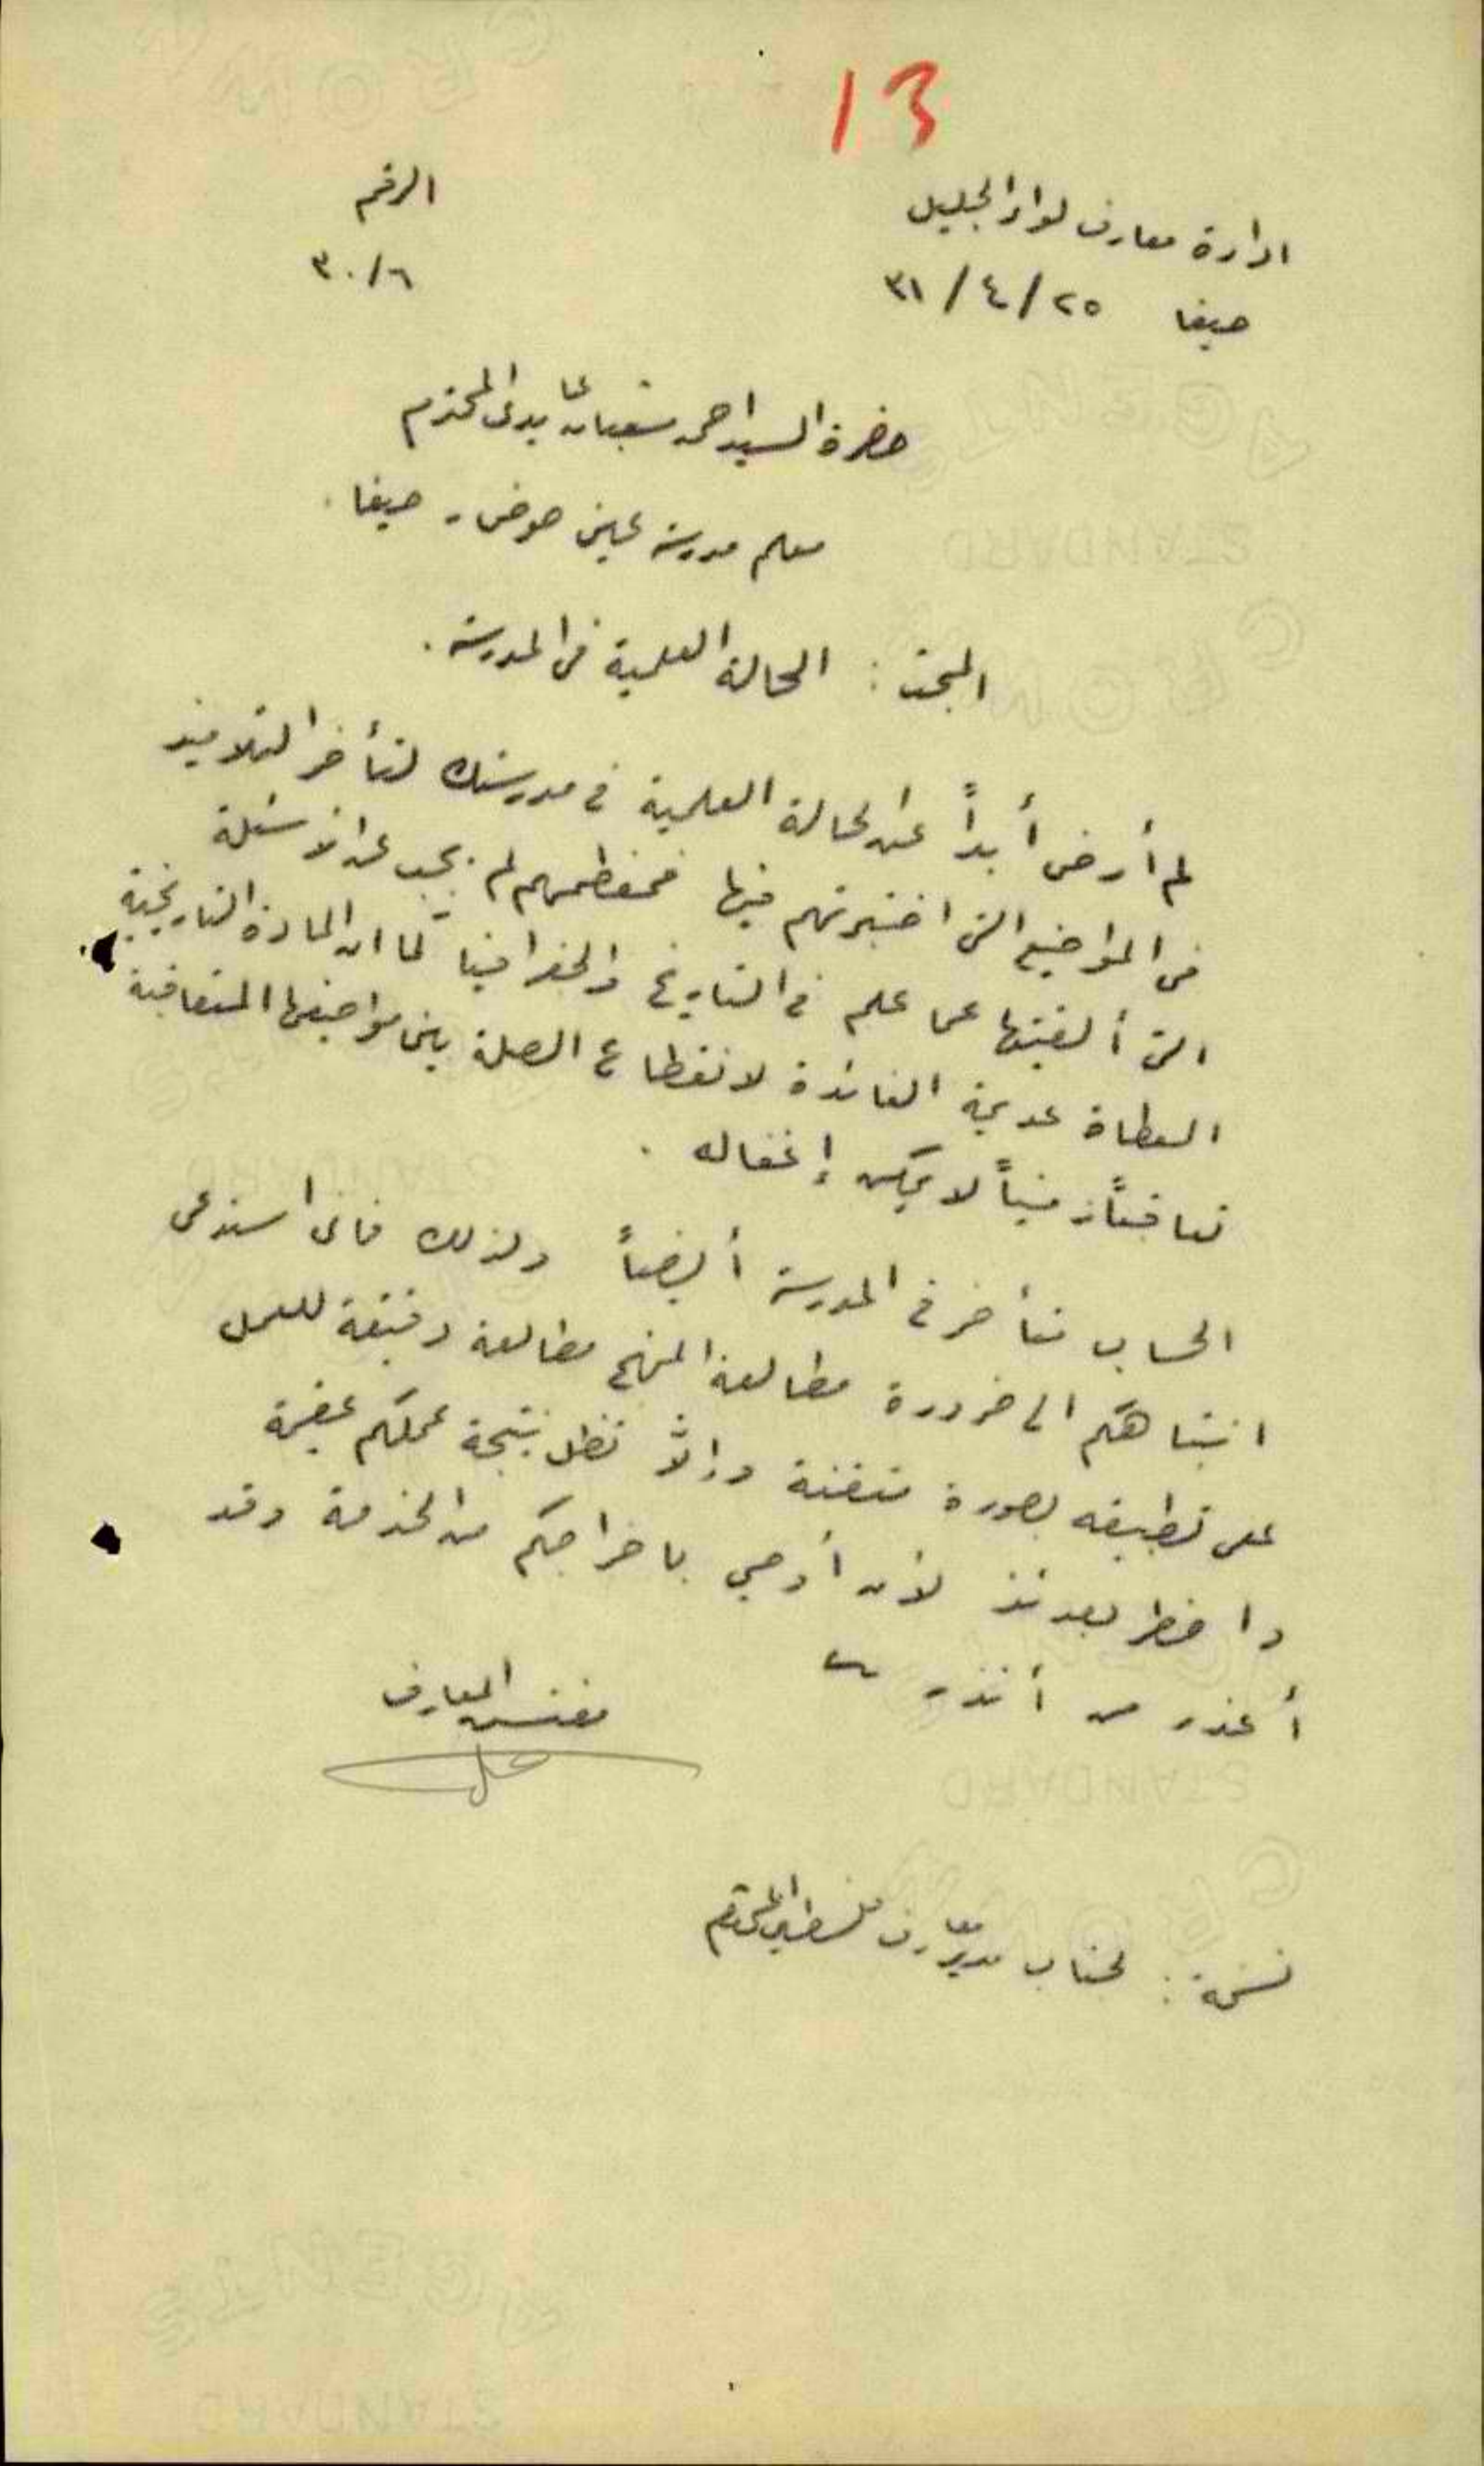 13
ادارة معارف لواء الجليل
الرقم
حيفا ٢٥/٤/٣١
٣٠/٦
حضرة السيد احمد شعبان عابدي المحترم
معلم مدرسة عين حوض - حيفا.
المبحث: الحالة العلمية في المدرسة.
لم أرض أبداً عن الحالة العلمية في مدرستك لتأخر التلاميذ
في المواضيع التي اختبرتهم فيها فمعظمهم لم يجب عن الاسئلة
التي ألقيتها عن علم في التاريخ والجغرافيا كما ان المادة التاريخية
المعطاة عديمة الفائدة لانقطاع الصلة بين مواضيعها المتعاقبة
تعاقباً زمنياً لا يمكن إغفاله.
الحساب متأخر في المدرسة أيضاً ولذلك فاني استدعي
انتباهكم الى ضرورة مطالعة المنهج مطالعة دقيقة للعمل
على تطبيقه بصورة متقنة وإلاّ تظل نتيجة عملكم عقيمة
واضطر بعدئذ لأن أوصي باخراجكم من الخدمة وقد
أعذر من أنذر
مفتش المعارف
نسخة: لجناب مدير معارف فلسطين المحترم
STANDARD
STANDARD
STANDARD